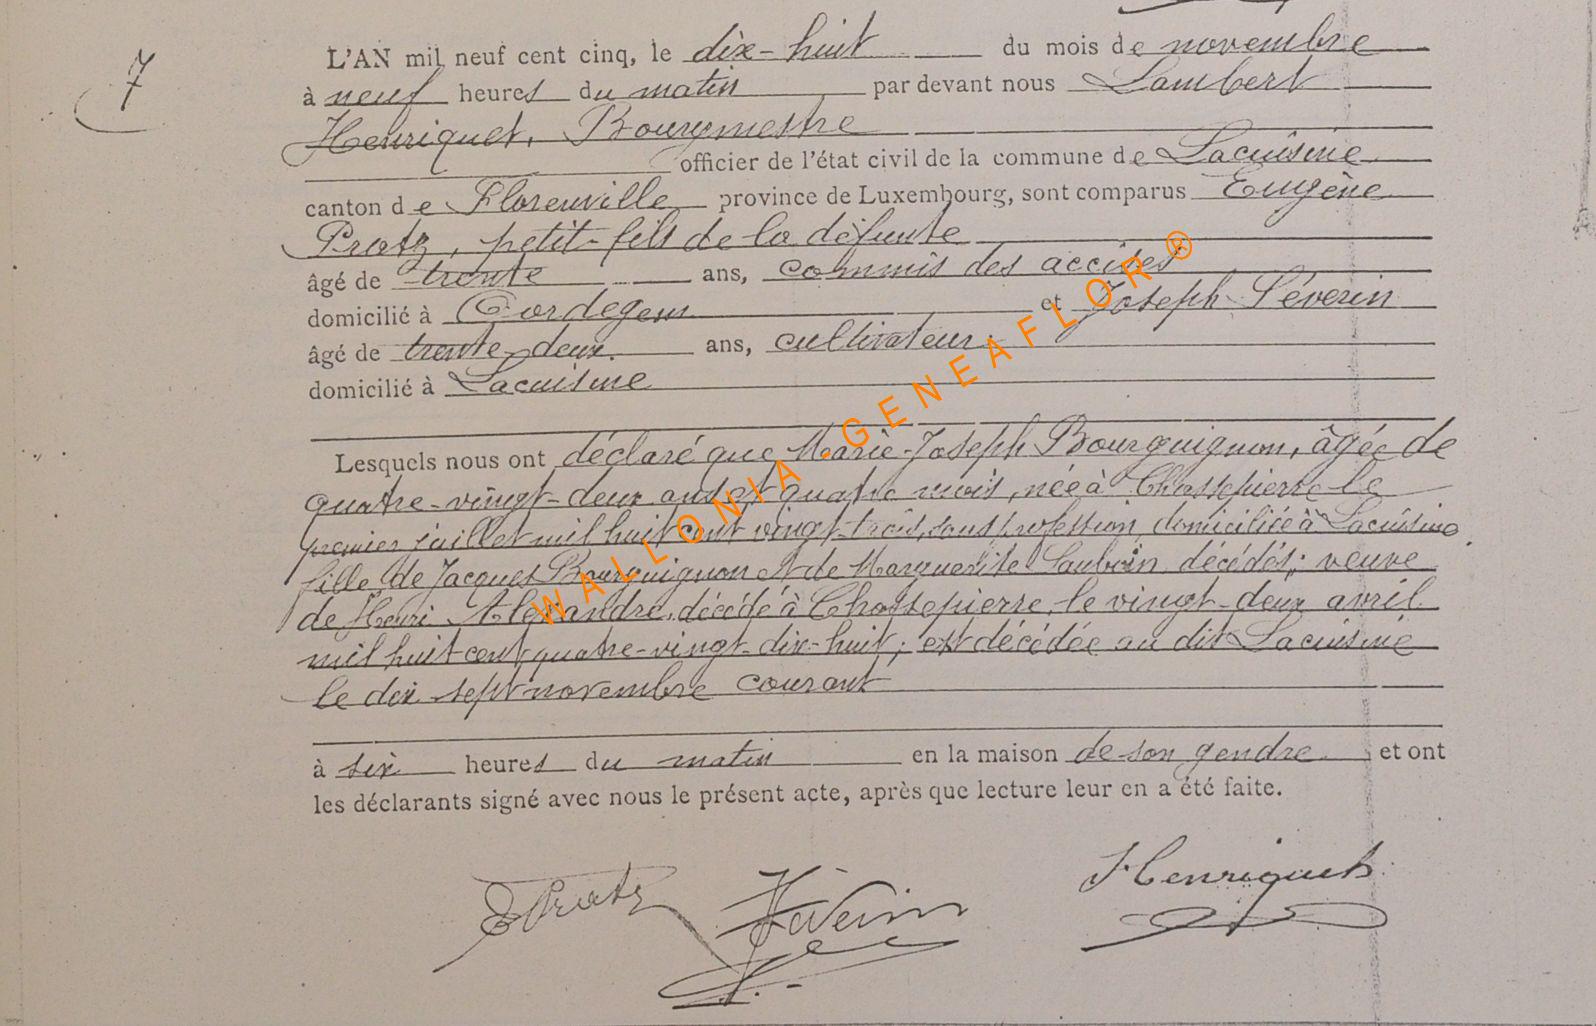 7
L'AN mil neuf cent cinq, le dix-huit du mois de novembre
à neuf heures du matin par devant nous Lambert
Henriquet, Bourgmestre
officier de l'état civil de la commune de Lacuisine
canton de Florenville province de Luxembourg, sont comparus Eugène
Pratz, petit-fils de la défunte
âgé de trente ans, commis des accises
domicilié à et Joseph Séverin
âgé de trente-deux ans, cultivateur
domicilié à Lacuisine
Lesquels nous ont déclaré que Marie-Joseph Bourguignon, âgée de
quatre-vingt-deux ans et quatre mois, née à Chassepierre le
premier juillet mil huit cent vingt-trois, sans profession, domiciliée à Lacuisine
fille de Jacques Bourguignon et de Marguerite décédés; veuve
de Henri Alexandre, décédé à Chassepierre, le vingt-deux avril
mil huit cent quatre-vingt-dix-huit; est décédée au dit Lacuisine
le dix sept novembre courant
à six heures du matin en la maison de son gendre et ont
les déclarants signé avec nous le présent acte, après que lecture leur en a été faite.
EPratz JSéverin Henriquet
WALLONIA.GENEAFLOR®